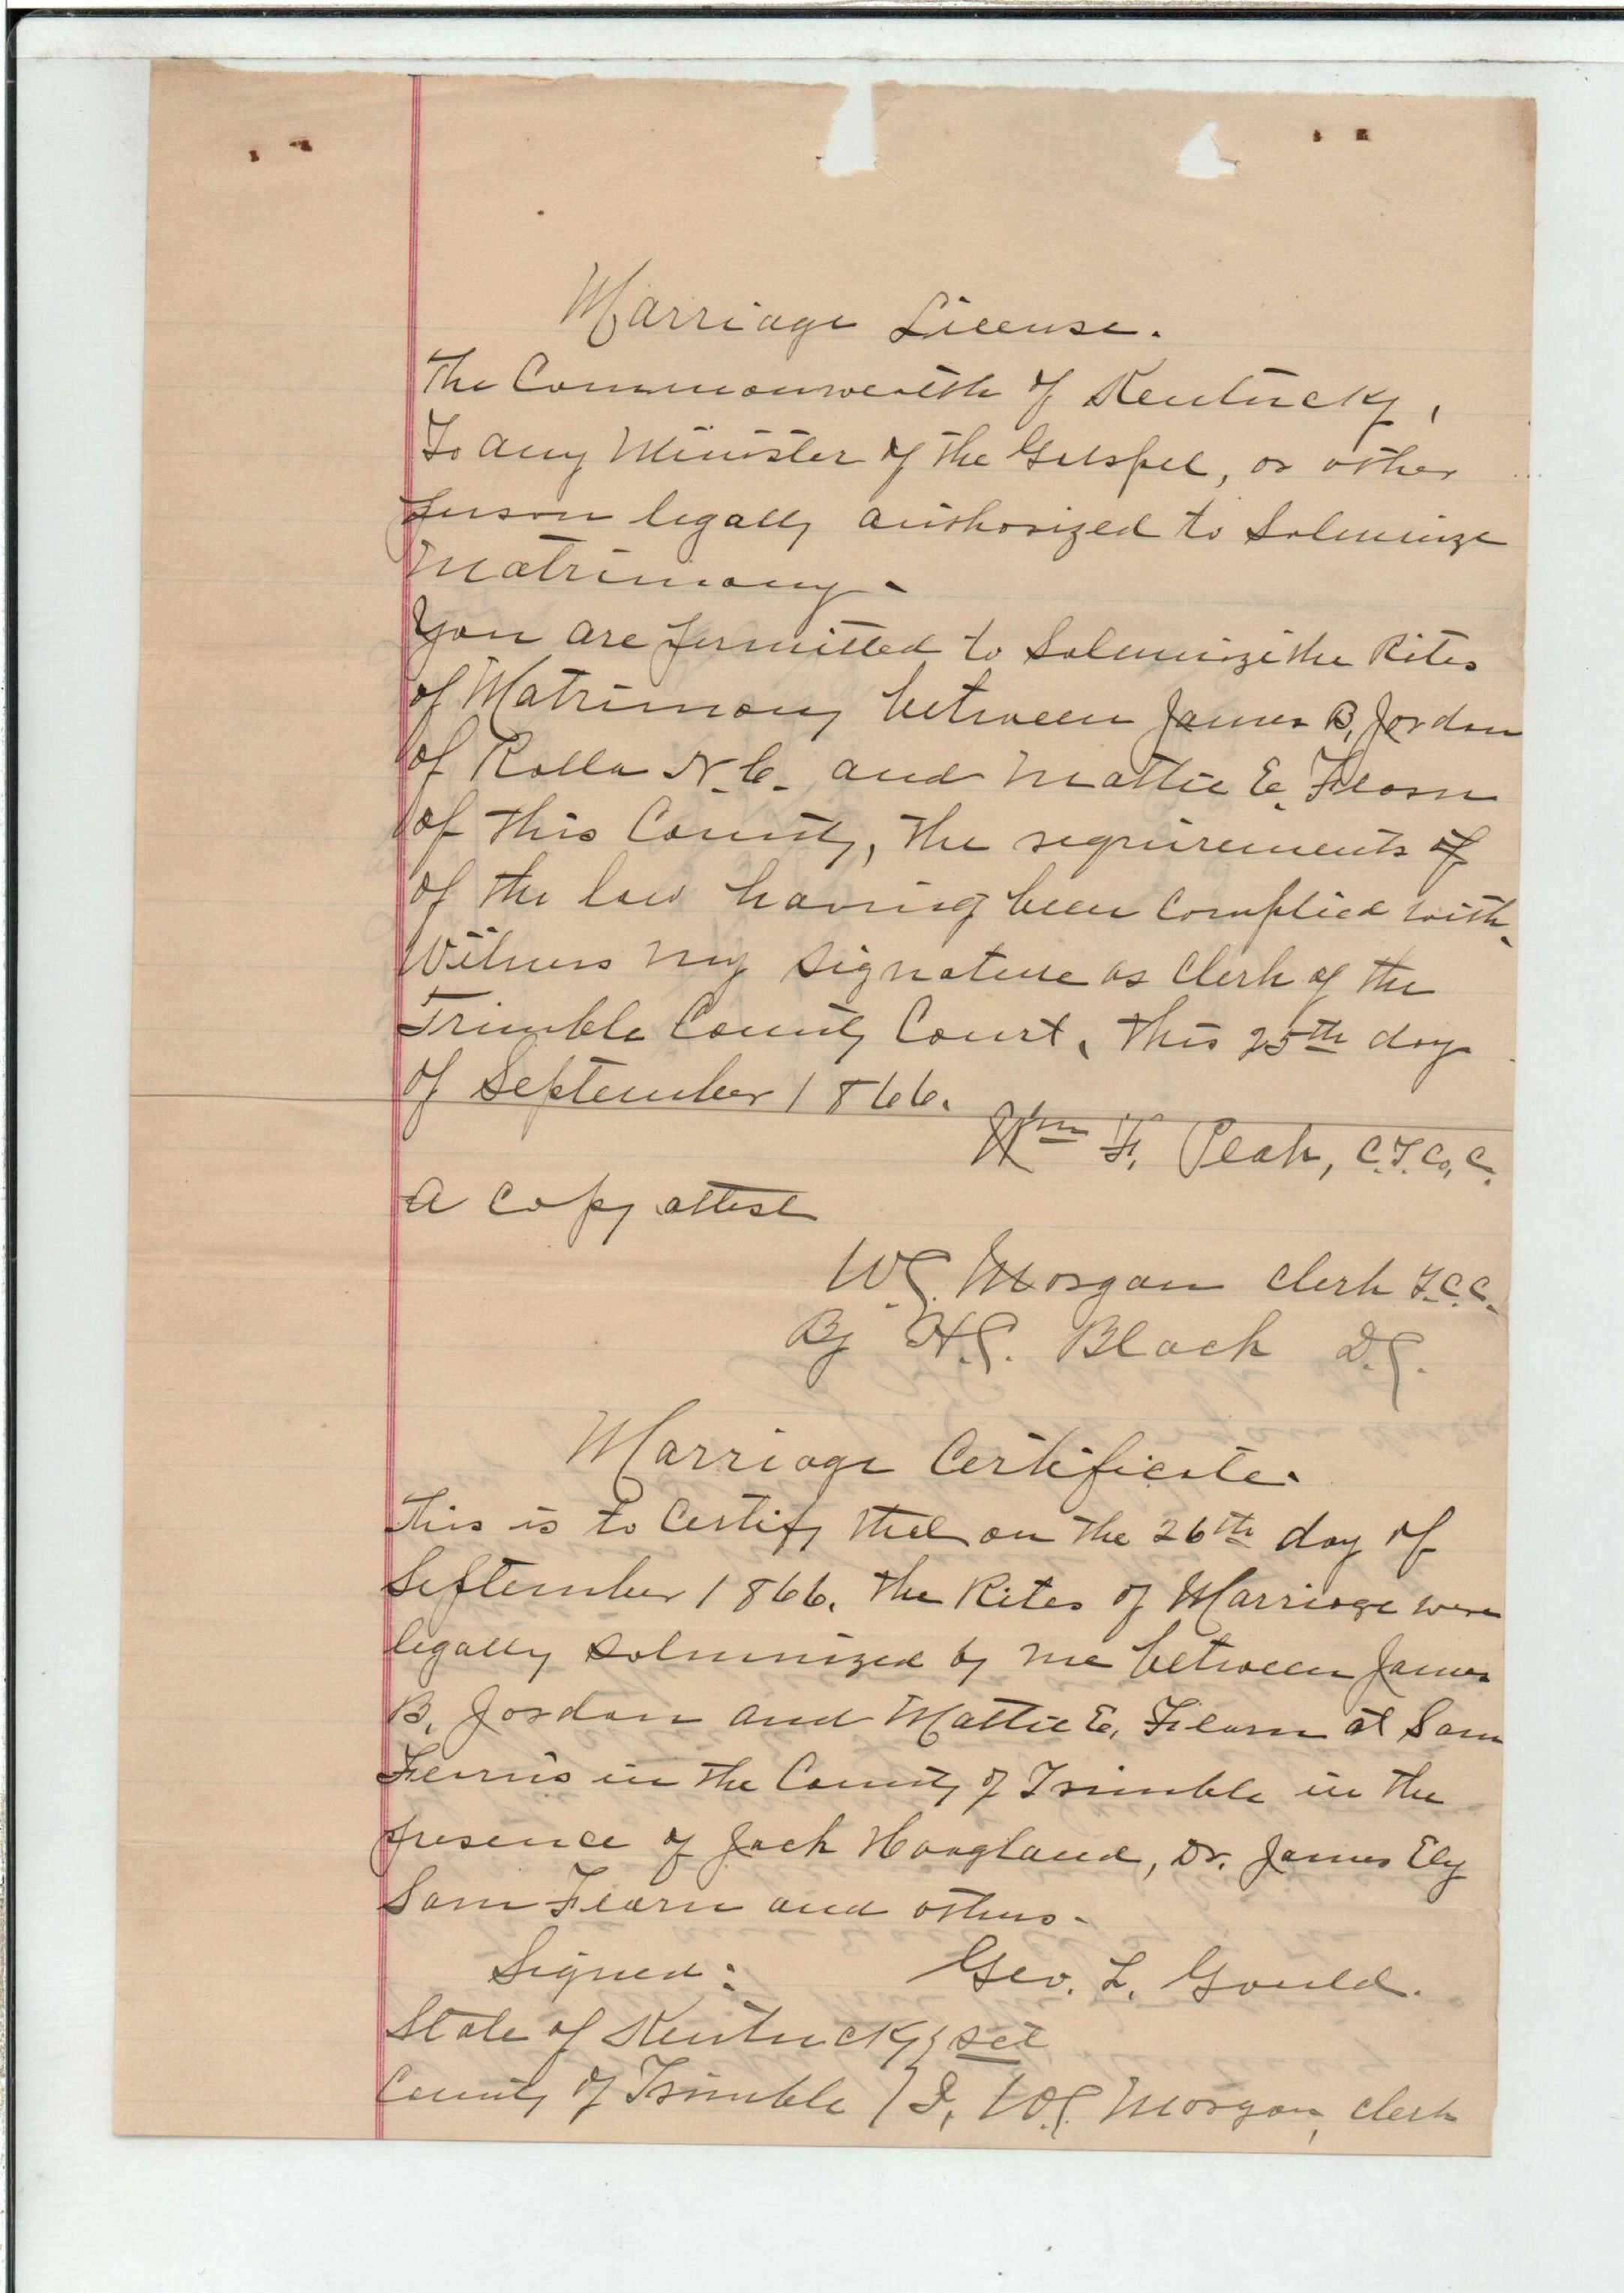 Marriage License.
The Commonwealth of Kentucky,
To any Minister of the Gospel, or other
person legally authorized to Solemnize
Matrimony.
You are permitted to Solemnize the Rites
of Matrimony between James B. Jordan
of Rolla N.C. and Mattie E. Fearn
of this County, the requirements of
of the law having been complied with.
Witness my signature as Clerk of the
Trimble County Court, this 25th day
of September 1866.
Wm F. Peak, C.T.Co.C.
A copy attest
W.G. Morgan Clerk T.C.C.
By H.G. Black D.C.
Marriage Certificate.
This is to Certify that on the 26th day of
September 1866. the Rites of Marriage were
legally solemnized by me between James
B. Jordan and Mattie E. Fearn at Sam
Fearn's in the County of Trimble in the
presence of Jack Hoagland, Dr. James Ely
Sam Fearn and others.
Signed: Geo. L. Gould.
State of Kentucky } sct
County of Trimble } I, W.G. Morgan, clerk